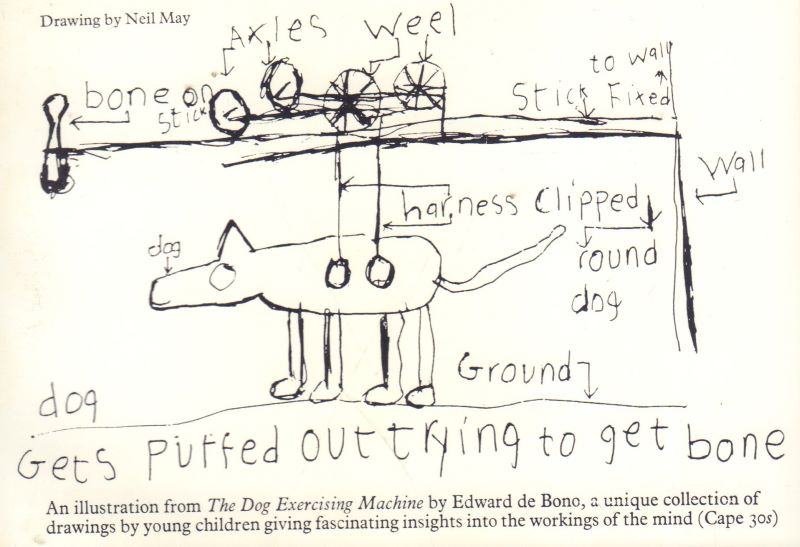 Drawing by Neil May
Axles
Weel
to wall
bone on
Stick
Stick Fixed
Wall
harness Clipped
round
dog
dog
Ground
dog
Gets Puffed out trying to get bone
An illustration from The Dog Exercising Machine by Edward de Bono, a unique collection of
drawings by young children giving fascinating insights into the workings of the mind (Cape 30s)